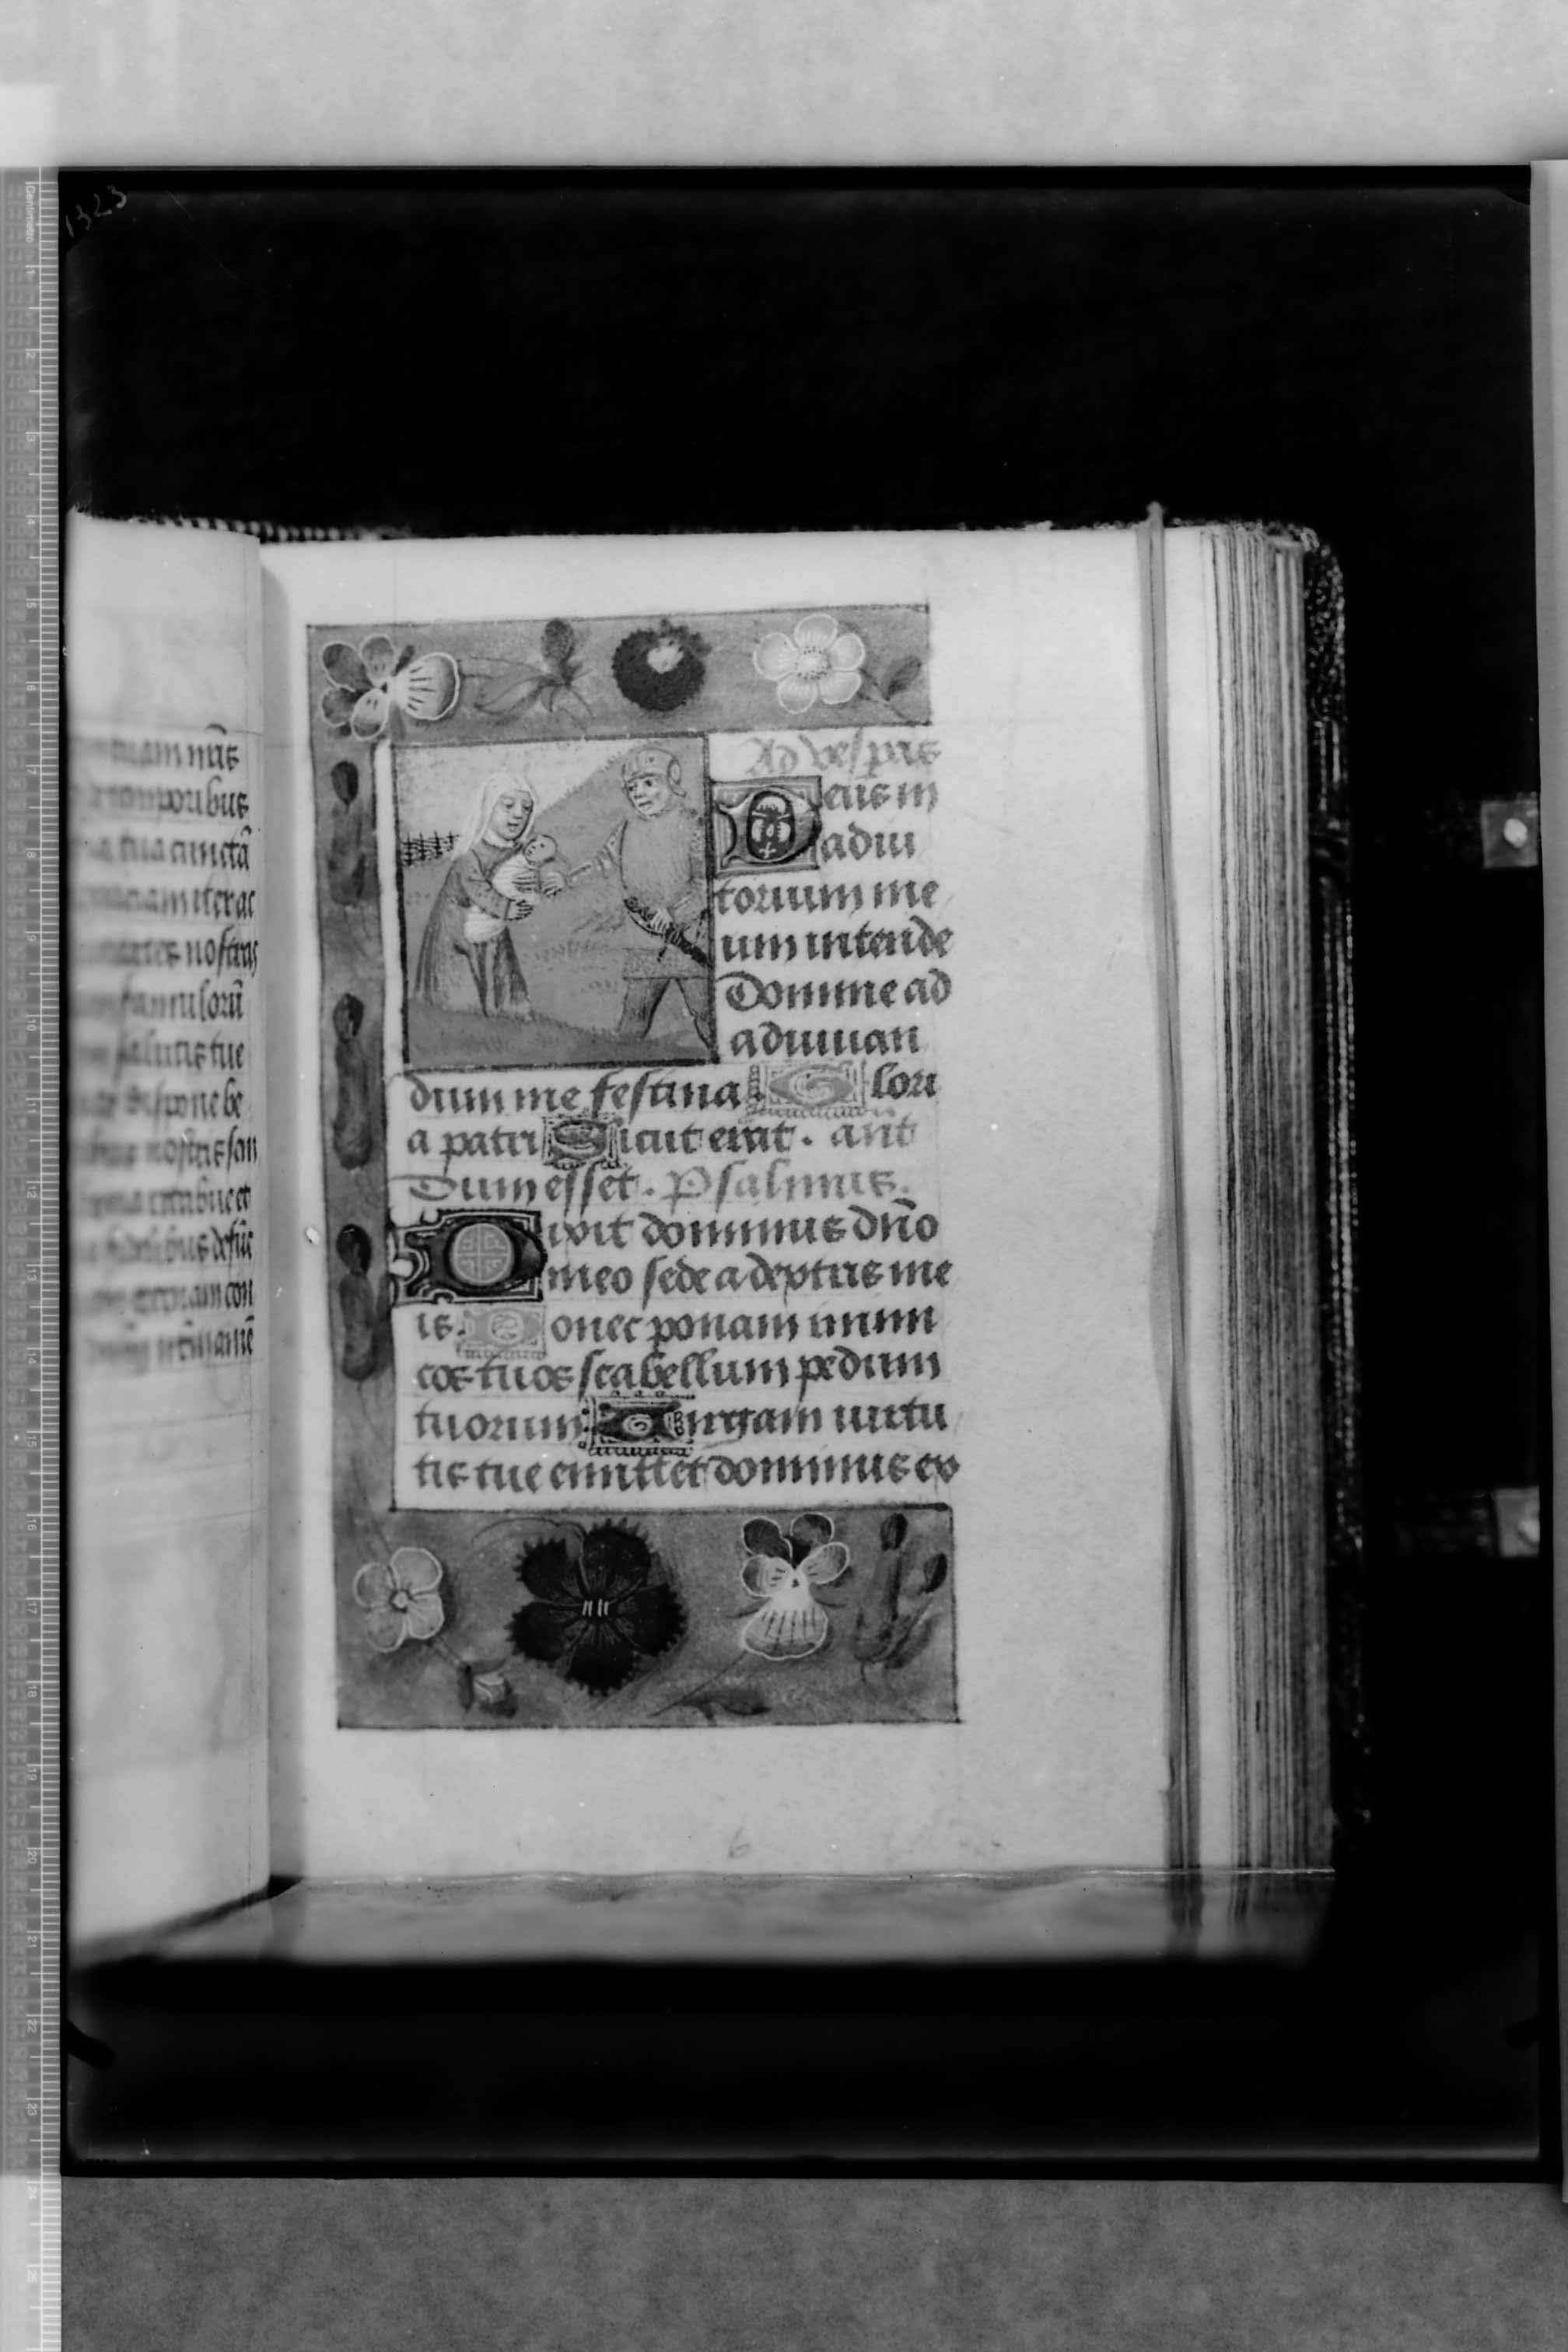 1323
Centimetro
nr̄is
temporibus
tua cunctā
iterae
nostras
famulorū
salutis tue
dispone be
nostris san
tribue et
fidelibus defūc
eternam con
Ad vesp̱as
Deus in
adiu
torium me
um intende
Domine ad
adiuuan
dum me festina. Glori
a patri Sicut erat. ant
Dum esset. Psalmus.
Dixit dominus dn̄o
meo sede a dextris me
is. Donec ponam inimi
cos tuos scabellum pedum
tuorum Uirgam uirtu
tis tue emittet dominus ex
6